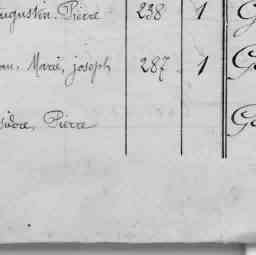 Augustin Pierre 238 1 G
Marie, joseph 287 1 G
Isidore, Pierre G